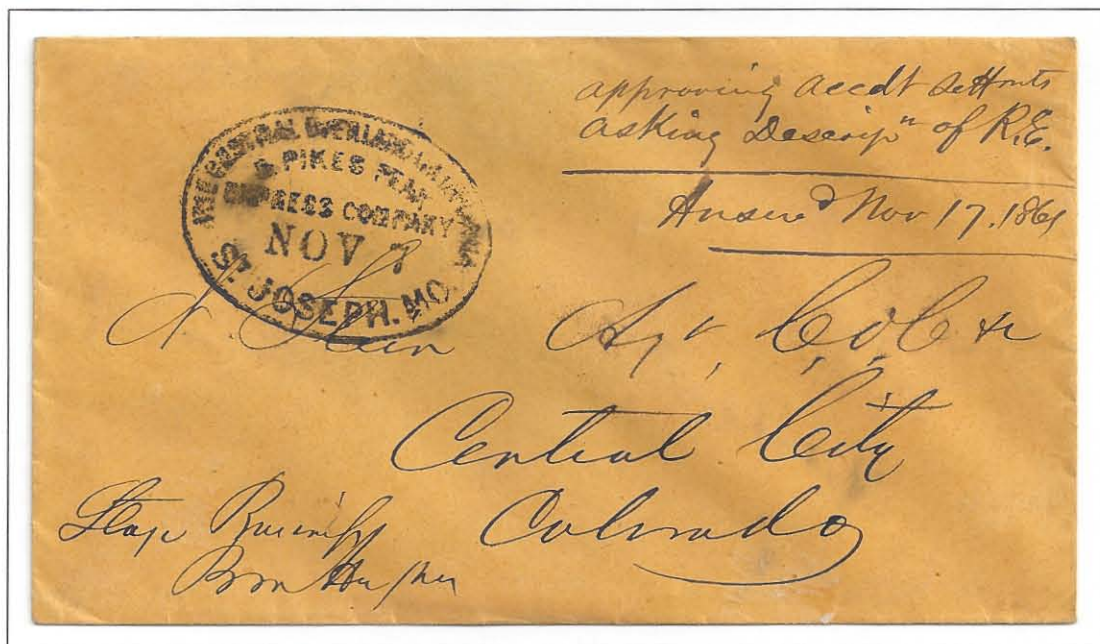 approving accdt settmts
asking Descripn of R.E.
Ansered Nov 17. 1861
THE CENTRAL OVERLAND CALIFORNIA
& PIKES PEAK
EXPRESS COMPANY
NOV 7
ST JOSEPH. MO.
Agt, C, O, C &c
Central City
Colorado
Stage Business
Bm Hughes